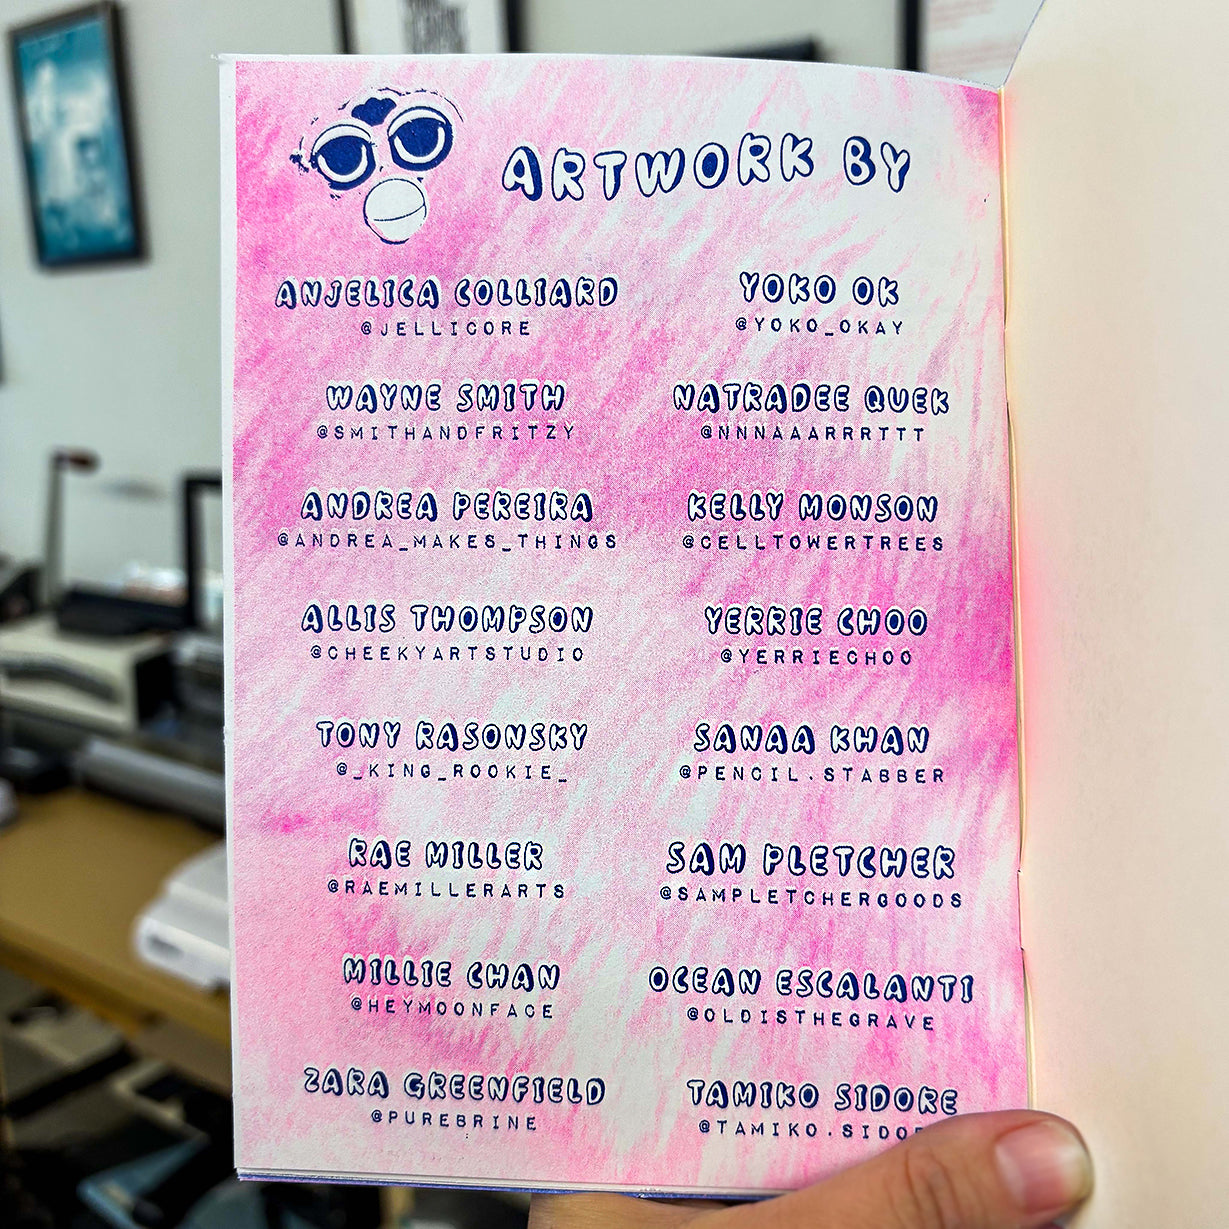 ARTWORK BY
ANJELICA COLLIARD
@JELLICORE
YOKO OK
@YOKO_OKAY
WAYNE SMITH
@SMITHANDFRITZY
NATRADEE QUEK
@NNNAAARRRTTT
ANDREA PEREIRA
@ANDREA_MAKES_THINGS
KELLY MONSON
@CELLTOWERTREES
ALLIS THOMPSON
@CHEEKYARTSTUDIO
YERRIE CHOO
@YERRIECHOO
TONY RASONSKY
@_KING_ROOKIE_
SANAA KHAN
@PENCIL.STABBER
RAE MILLER
@RAEMILLERARTS
SAM PLETCHER
@SAMPLETCHERGOODS
MILLIE CHAN
@HEYMOONFACE
OCEAN ESCALANTI
@OLDISTHEGRAVE
ZARA GREENFIELD
@PUREBRINE
TAMIKO SIDORE